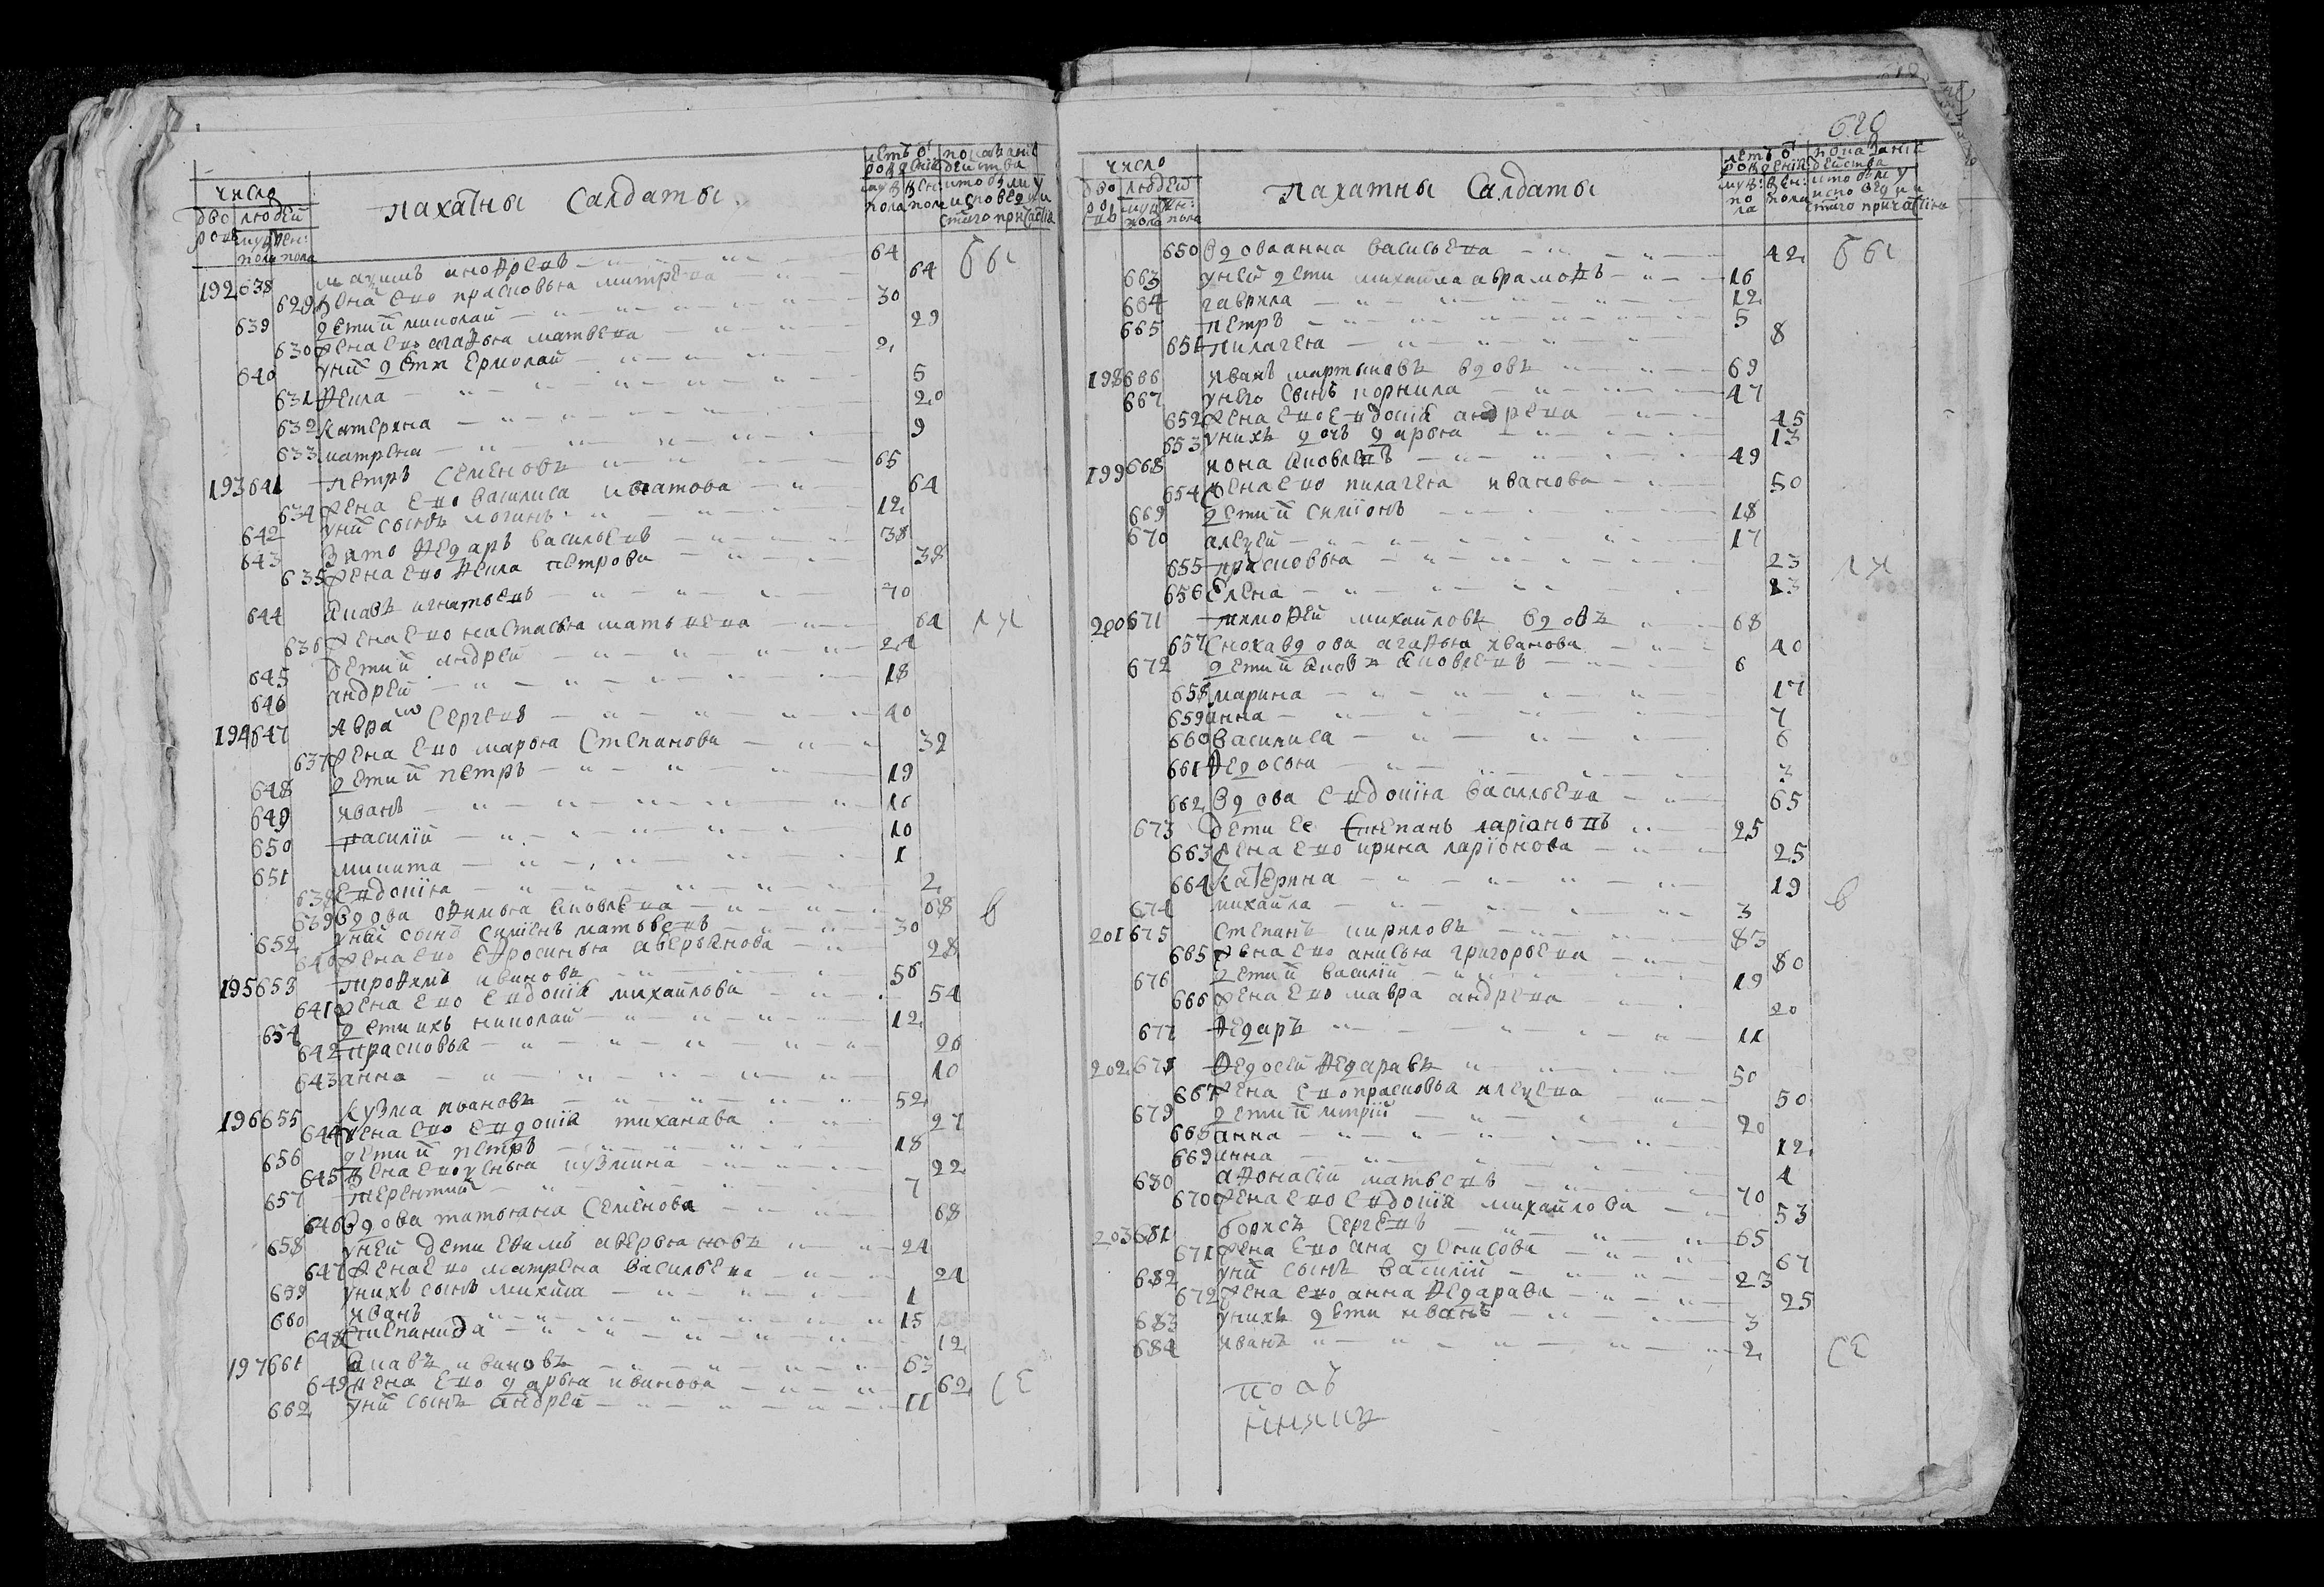 число
дворовъ
людей
муж: пола
жен: пола
пахатны салдаты
летъ от рождения
муж: пола
жен: пола
показание действа
кто были у исповеди и стаго причастия
192 638 64
629 жена ево прасковья митрева 64 бы
639 дети й николай 30
630 жена ево агафья матвева 29
640 у ний дети ермолай 2
631 фекла 5
632 катерина 20
633 матрена 9
193 641 петръ семеновъ 65
634 жена ево василиса 64
642 у ний сынъ логинъ 12
643 зято федаръ васильевъ 38
635 жена ево фекла петрова 38
644 игнатьевъ 70
636 жена ево настасья матвеева 64
645 дети й андрей 24
646 андрей 18
194 647 аврамъ сергевъ 40
637 жена ево марья степанова 32
648 дети й петръ 19
649 иванъ 16
650 василий 10
651 никита 1
638 евдокия 2
639 вдова офимья яковлева 68
652 у ней сынъ симионъ матвеевъ 30
640 жена ево ефросинья аверьянова 28
195 653 трофимъ ивановъ 56
641 жена ево евдокия михайлова 54
654 дети ихъ николай 12
642 прасковья 20
643 анна 10
196 655 кузма ивановъ 52
644 жена ево евдокия тиханава 27
656 дети й петръ 18
645 жена ево кузмина 22
657 терентий 7
646 вдова татьяна семенова 68
658 у ней дети ефимъ аверьяновъ 24
647 жена ево матрена васильева 24
659 у нихъ сынъ никита 1
660 иванъ 15
648 степанида 12
197 661 ивановъ 63
649 жена ево дарья иванова 62
662 у ний сынъ андрей 11
620
число
дворовъ
людей
муж: пола
жен: пола
пахатны салдаты
летъ от рождения
муж: пола
жен: пола
показание действа
кто были у исповеди и стаго причастия
650 вдова анна васильева 42 бы
663 у ней дети михайла аврамовъ 16
664 гаврила 12
665 петръ 5
651 пилагея 8
198 666 иванъ мартыновъ вдовъ 69
667 у него сынъ корнила 47
652 жена ево евдокия андрева 45
653 у нихъ дочь дарья 13
199 668 яковлевъ 49
654 жена ево пилагея иванова 50
669 дети й симионъ 18
670 алексей 17
655 прасковья 23
656 елена 13
200 671 тимофей михайловъ вдовъ 68
657 сноха вдова агафья иванова 40
672 дети й яковъ яковлевъ 6
658 марина 17
659 анна 7
660 василиса 6
661 федосья
662 вдова евдокия васильева 65
673 дети ее степанъ ларионовъ 25
663 жена ево ирина ларионова 25
664 катерина 19
674 михайла 3
201 675 степанъ кириловъ 83
665 жена ево анисья григорьева 80
676 дети й василий 19
666 жена ево мавра андрева 20
677 федаръ 11
202 678 федосей федаравъ 50
667 жена ево прасковья алексева 50
679 дети й митрий 20
668 анна 12
669 анна 4
680 афонасий матвеевъ 70
670 жена ево евдокия михайлова 53
203 681 борисъ сергевъ 65
671 жена ево ана денисова 67
682 у ний сынъ василий 23
672 жена ево анна федарава 25
683 у нихъ дети иванъ 3
684 иванъ 2